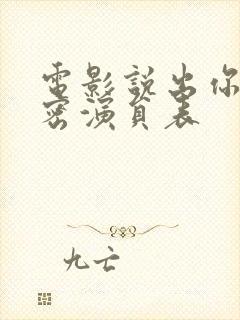 電影說出你
密演員表
九亡